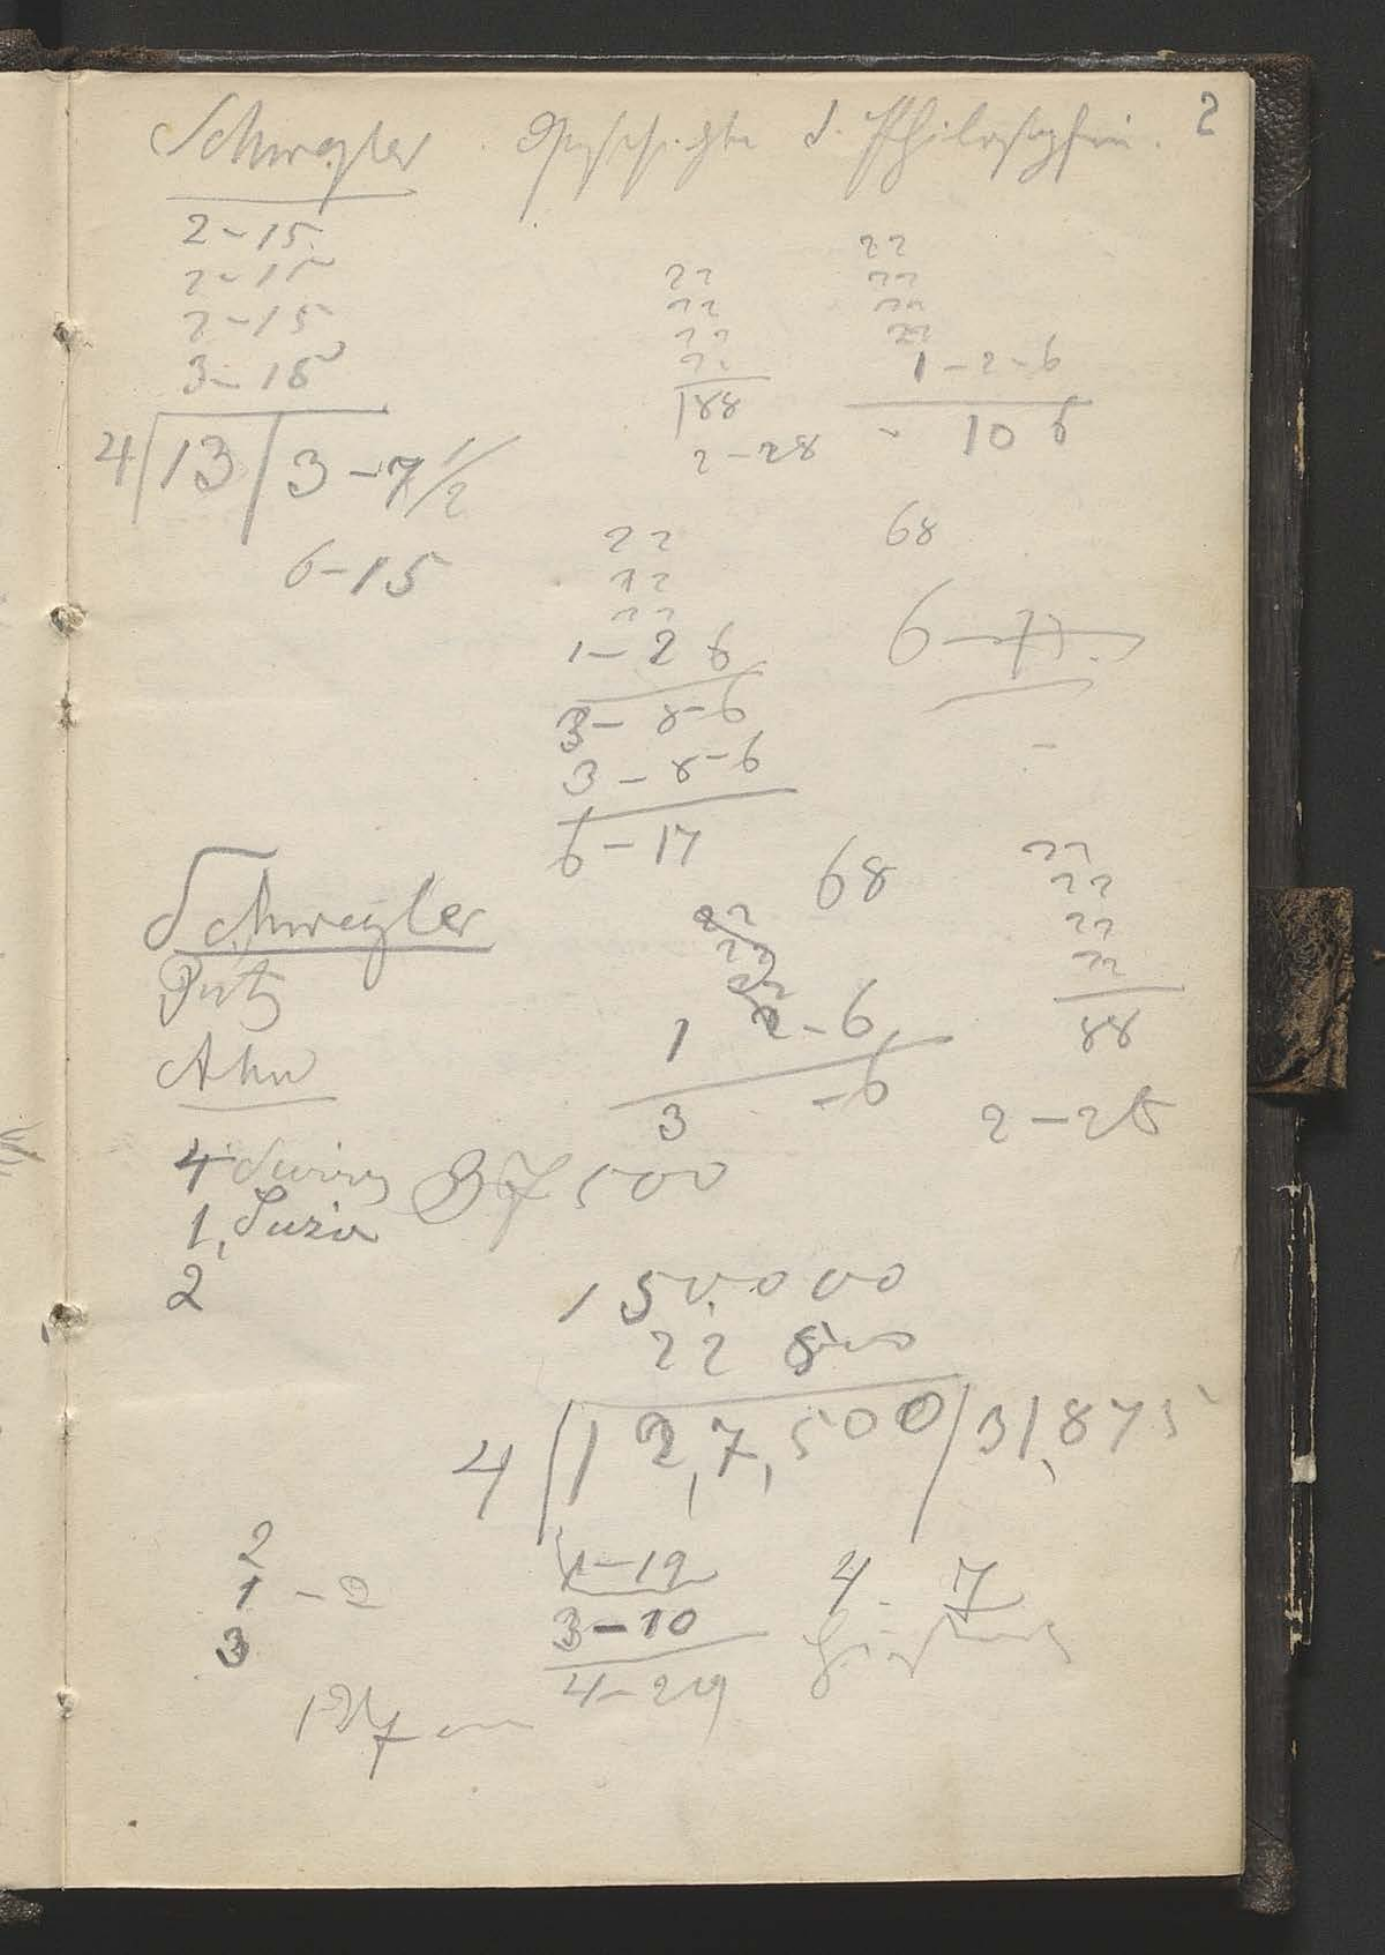 2
Schwegler Geschichte d. Philosophie.
2-15
2-15
2-15
3-15
4/13/3-7 1/2
6-15
22
22
22
22
188
2-28
22
22
22
22
1-2-6
10 6
68
22
22
22
1-2 6
3-8-6
3-8-6
6-17
6-
68
22
22
22
1 2-6
3 -6
22
22
22
22
88
2-28
Schwegler
Putz
Ahn
4
1,
2
500
150,000
22 500
4/127,500/31,875
2
1-2
3
1-19
3-10
4-29
4. 7